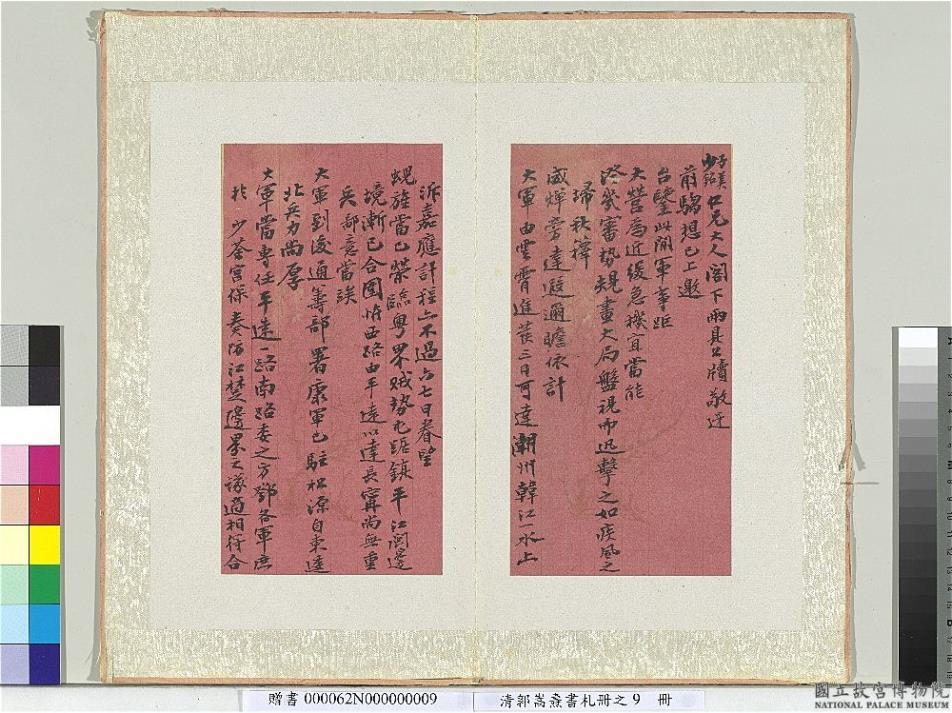 仁兄大人閣下兩具公牘敬迓
前騶想已上邀
台鑒此間軍事距
大營為近緩急機宜當能
審勢規畫大局盤視而迅擊之如疾風之
掃秋籜
威煇旁達遐邇瞻依計
大軍由雲霄進發三日可達潮州韓江一水上
泝嘉應計程亦不過六七日眷望
蜺旌當已榮臨粵界賊勢屯踞鎮平江閩邊
境漸已合圍惟西路由平遠以達長甯尚無重
兵鄙意當俟
大軍到後通籌部署康軍已駐松源自東達
北兵力尚厚
大軍當專任平遠一路南路委之方鄧各軍庶
於少荃宮保奏防江楚邊界之議適相符合
贈書 000062N000000009
清郭嵩燾書札冊之 9 冊
國立故宮博物院
NATIONAL PALACE MUSEUM